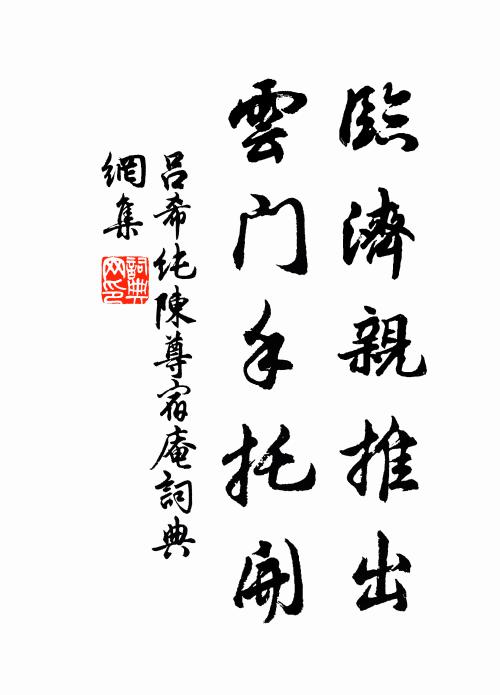 臨濟親推出
雲門手托開
呂希純陳尊宿庵詞典
網集
詞典網印